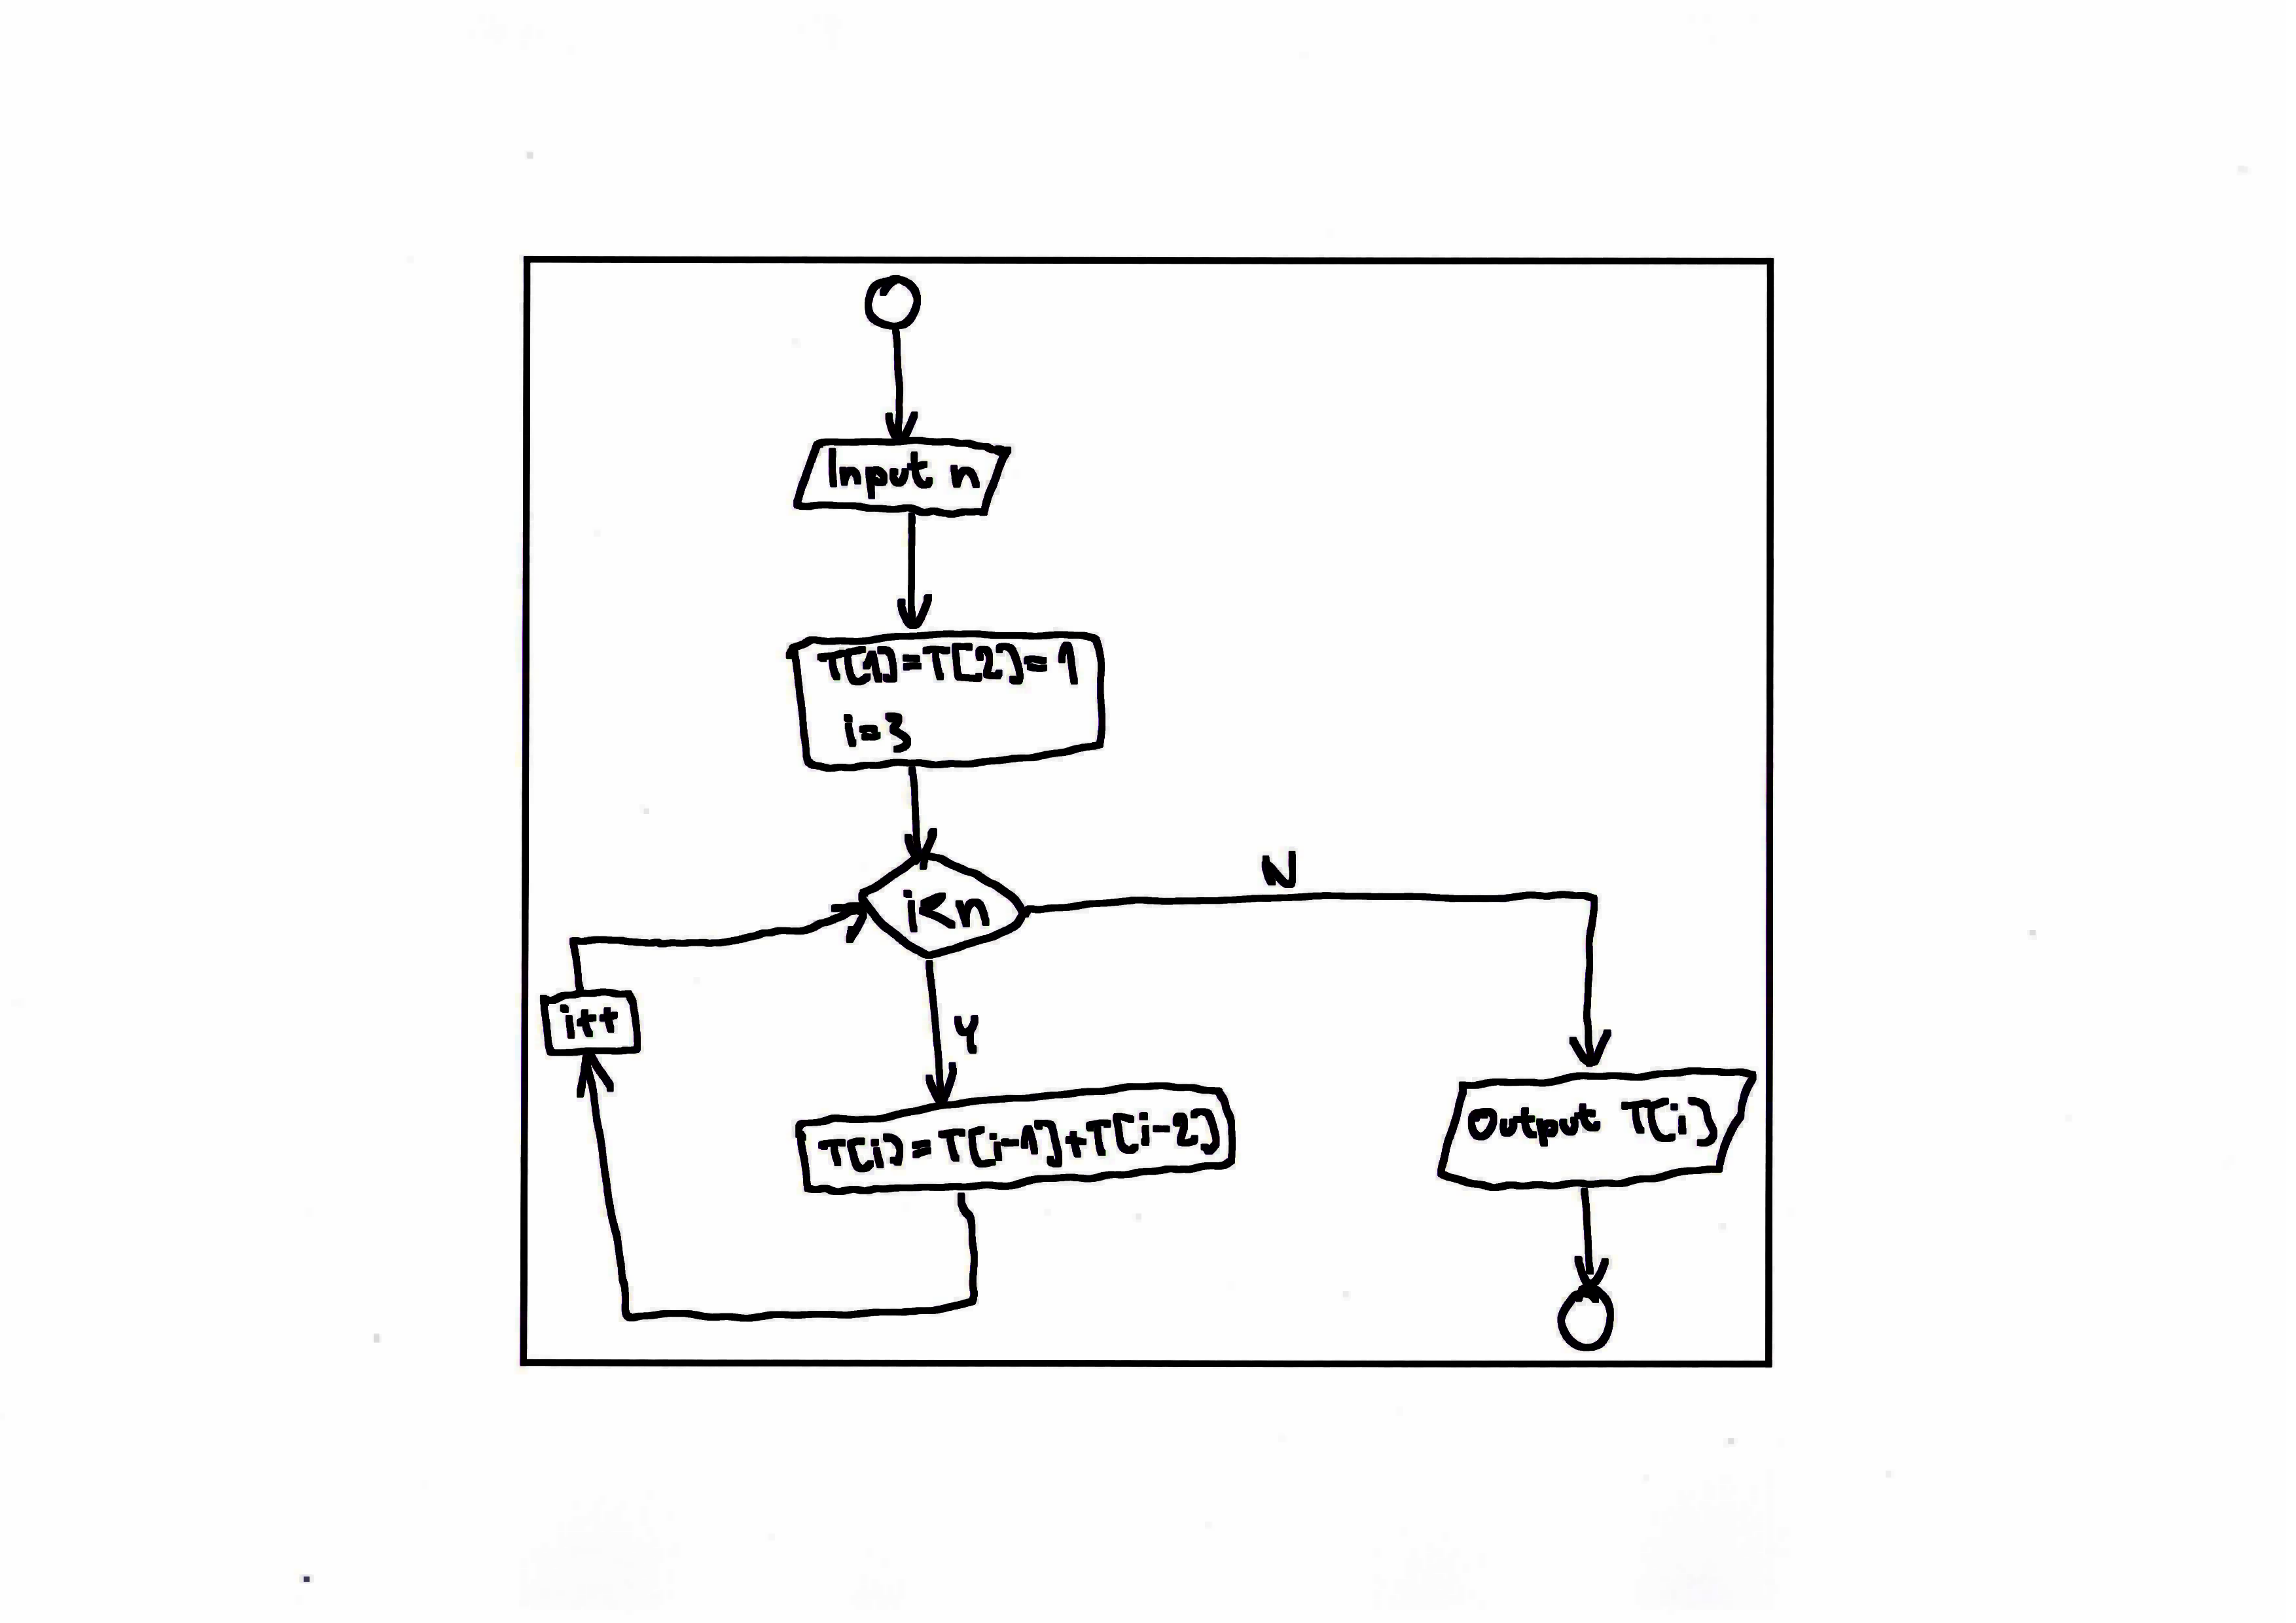 Input n
T[1]=T[2]=1
i=3
i<n
N
Y
i++
T[i]=T[i-1]+T[i-2]
Output T[i]